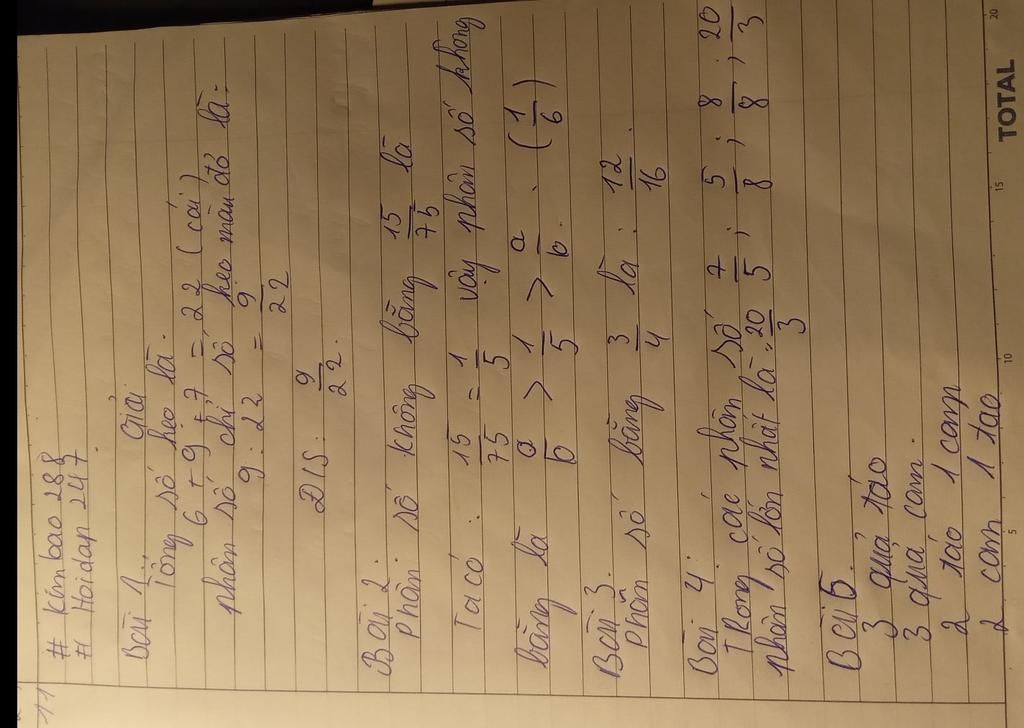 11
# Kimbao 288
# Hoidap 247
Bài 1. Giải
Tổng số kẹo là.
6 + 9 + 7 = 22 (cái)
phân số chỉ số kẹo màu đỏ là:
9 : 22 = 9/22
Đ/S: 9/22.
Bài 2.
Phân số không bằng 15/75 là
Ta có: 15/75 = 1/5 vậy phân số không
bằng là a/b > 1/5 > a/b. (1/6)
Bài 3.
Phân số bằng 3/4 là: 12/16.
Bài 4:
TRong các phân số 7/5; 5/8; 8/8; 20/3
phân số lớn nhất là: 20/3
Bài 5.
3 quả táo
3 quả cam.
2 táo 1 cam
2 cam 1 táo
5 10 15 20
TOTAL